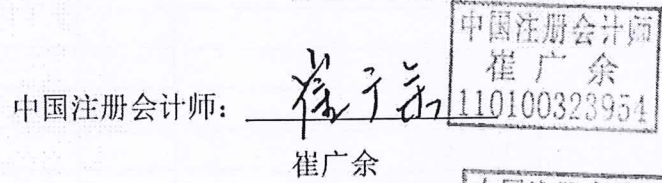 中国注册会计师
崔广余
110100323954
中国注册会计师：崔广余
崔广余